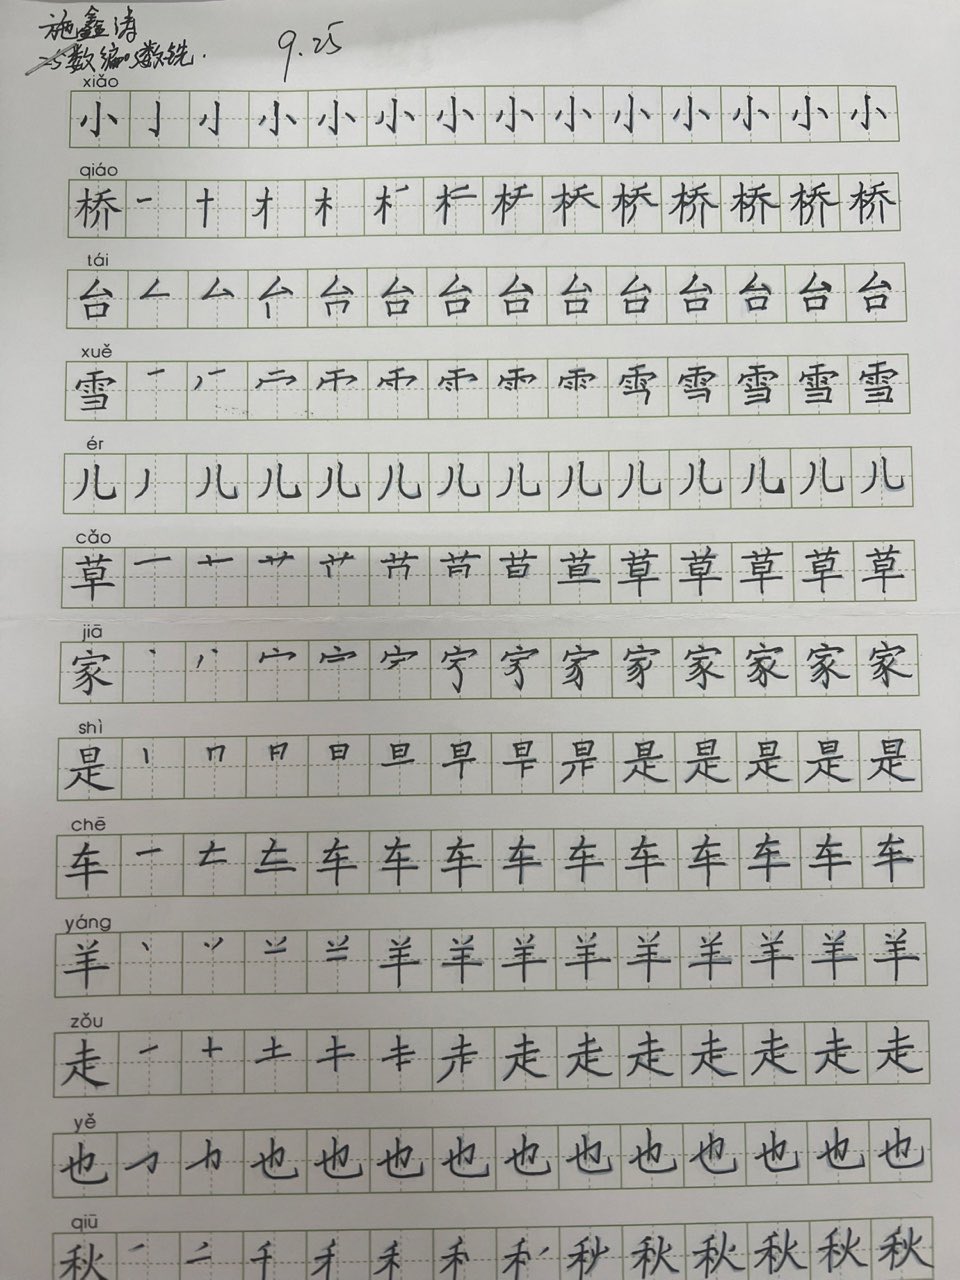 施鑫涛
数编数铣. 9.25
xiǎo
小 亅 小 小 小 小 小 小 小 小 小 小 小
qiáo
桥 一 十 才 木 桥 桥 桥 桥 桥
tái
台 厶 台 台 台 台 台 台 台 台 台 台
xuě
雪 一 雪 雪 雪 雪
ér
儿 丿 儿 儿 儿 儿 儿 儿 儿 儿 儿 儿 儿 儿
cǎo
草 一 十 艹 苩 草 草 草 草 草
jiā
家 丶 宀 家 家 家 家 家
shì
是 丨 冂 日 日 旦 早 是 是 是 是 是
chē
车 一 车 车 车 车 车 车 车 车 车 车
yáng
羊 丶 丷 羊 羊 羊 羊 羊 羊 羊 羊 羊
zǒu
走 一 十 土 走 走 走 走 走 走 走
yě
也 也 也 也 也 也 也 也 也 也 也 也
qiū
秋 一 二 千 禾 禾 秋 秋 秋 秋 秋